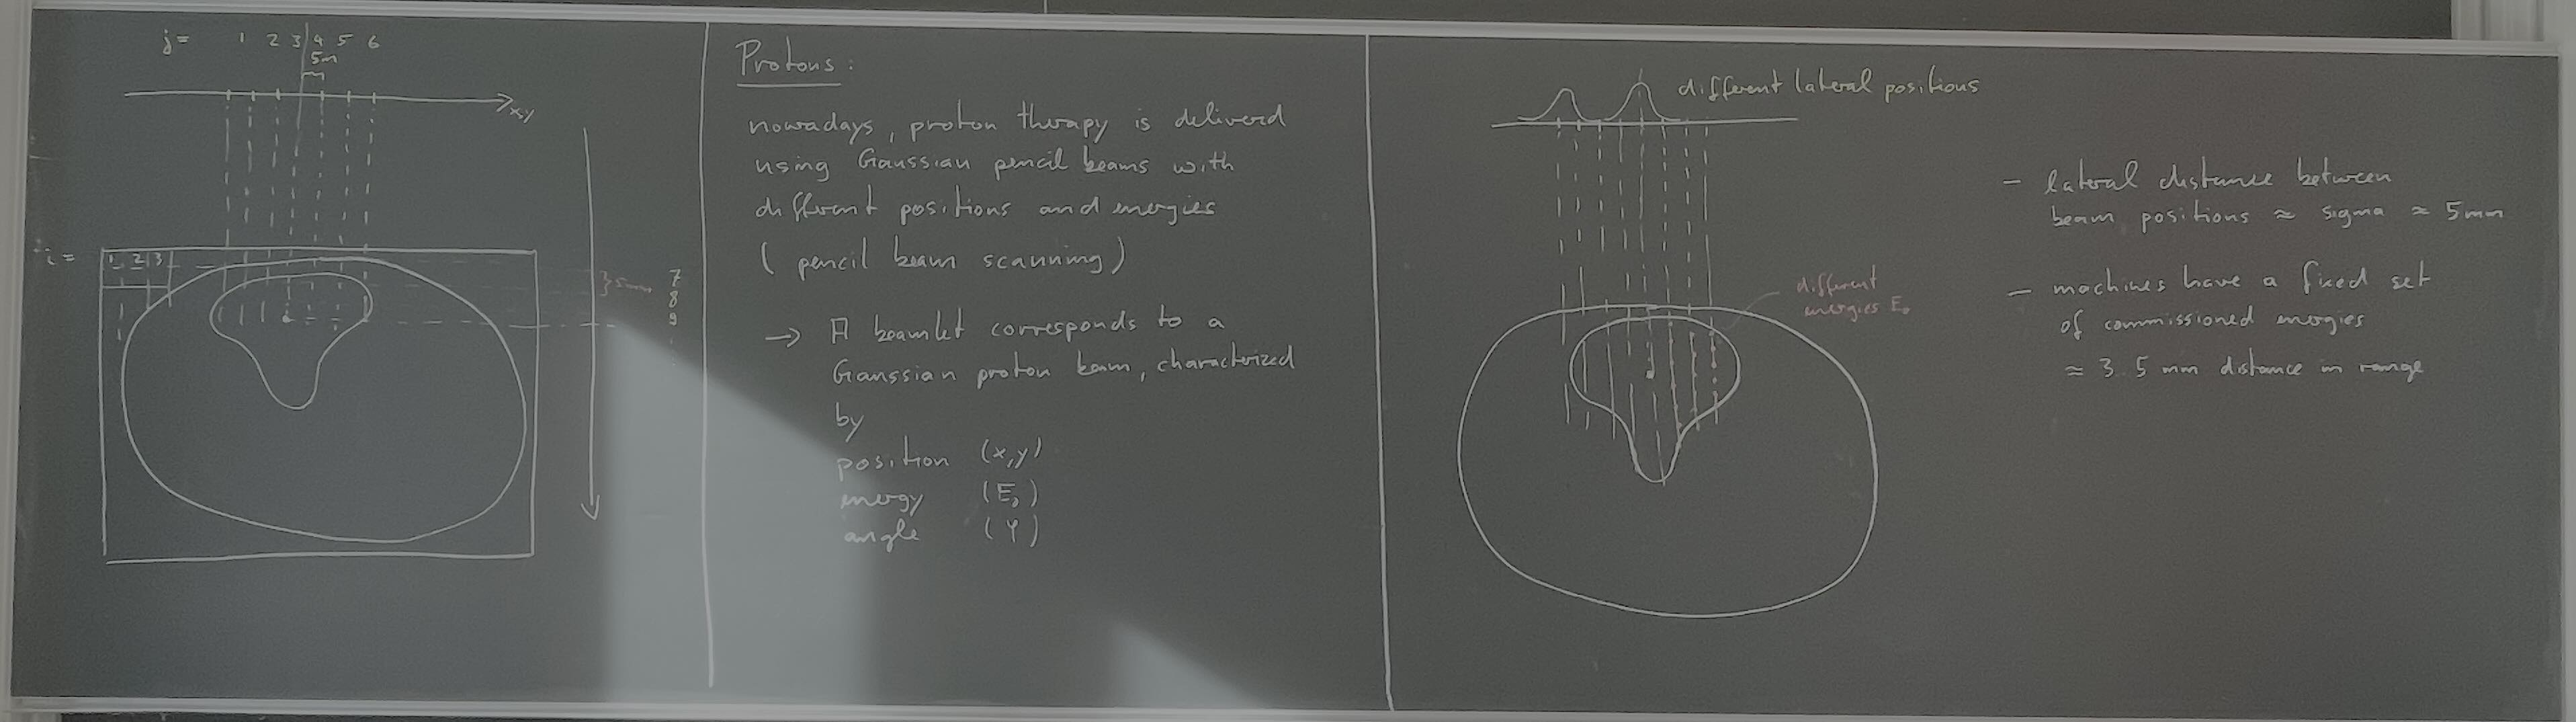 j= 1 2 3 4 5 6
5m
x,y
i=
1 2 3
}5mm
7
8
9
Protons:
nowadays, proton therapy is deliverd
using Gaussian pencil beams with
different positions and energies
( pencil beam scanning )
→ A beamlet corresponds to a
Gaussian proton beam, characterized
by
position (x,y)
energy (E₀)
angle (φ)
different lateral positions
different
energies E₀
- lateral distance between
beam positions ≈ sigma ≈ 5mm
- machines have a fixed set
of commissioned energies
≈ 3.5 mm distance in range